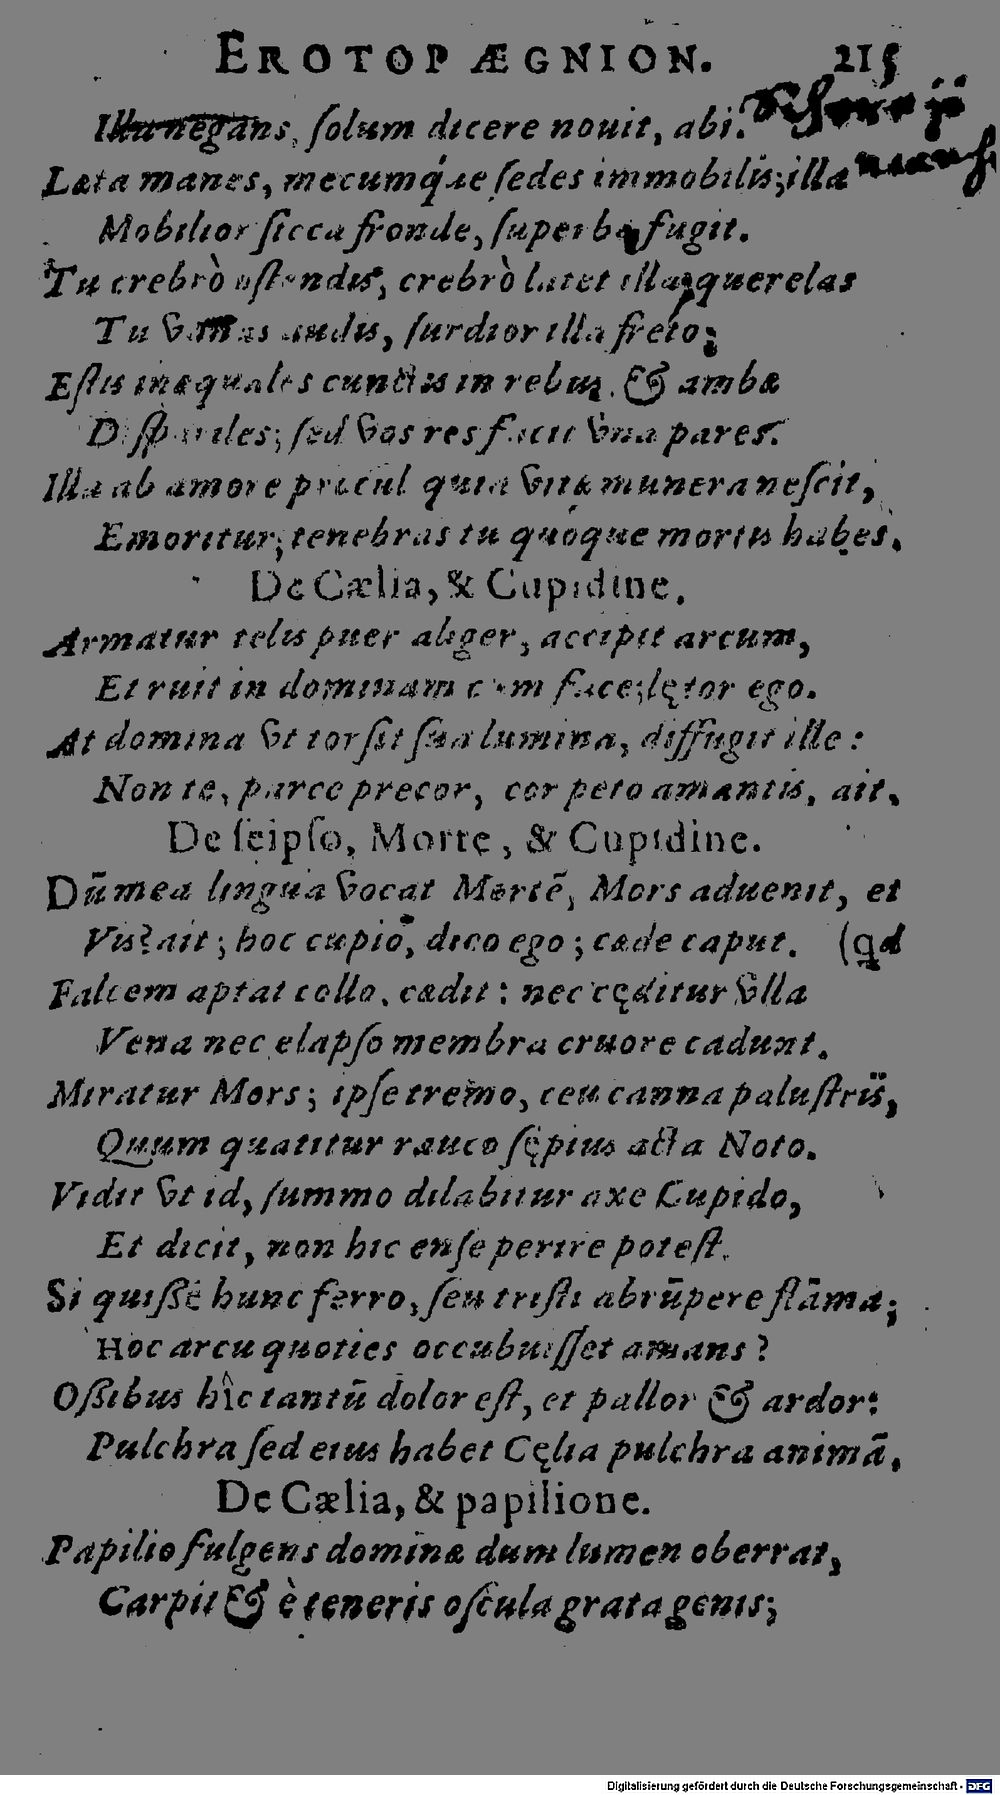 EROTOPÆGNION. 215
Illa negans, ſolum dicere nouit, abi.
Læta manes, mecumq́ue ſedes immobilis; illa
Mobilior ſicca fronde, ſuperba fugit.
Tu crebrò oſtendis, crebrò latet illa, querelas
Tu vanas audis, ſurdior illa freto;
Eſtis inæquales cunctis in rebus. & ambæ
Diſpariles; ſed vos res facit vna pares.
Illa ab amore procul quia vitæ munera neſcit,
Emoritur; tenebras tu quoque mortis habes.
De Cælia, & Cupidine.
Armatur telis puer aliger, accipit arcum,
Et ruit in dominam cum face; lętor ego.
At domina vt torſit ſua lumina, diffugit ille:
Non te, parce precor, cor peto amantis, ait.
De ſeipſo, Morte, & Cupidine.
Dūmea lingua vocat Mortē, Mors aduenit, et
Vis? ait; hoc cupio, dico ego; cæde caput. (qd
Falcem aptat collo. cædit: nec cęditur vlla
Vena nec elapſo membra cruore cadunt.
Miratur Mors; ipſe tremo, ceu canna paluſtris,
Quum quatitur rauco ſępius acta Noto.
Vidit vt id, ſummo dilabitur axe Cupido,
Et dicit, non hic enſe perire poteſt.
Si quiſſé hunc ferro, ſeu triſti abrūpere flāma;
Hoc arcu quoties occubuiſſet amans?
Oſſibus hîc tantū dolor eſt, et pallor & ardor:
Pulchra ſed eius habet Cęlia pulchra animā.
De Cælia, & papilione.
Papilio fulgens dominæ dum lumen oberrat,
Carpit & è teneris oſcula grata genis;
Digitalisierung gefördert durch die Deutsche Forschungsgemeinschaft - DFG